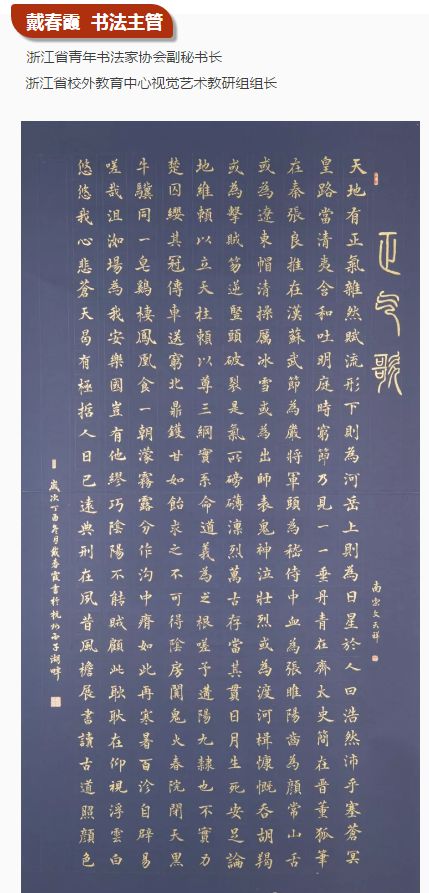 戴春霞 书法主管
浙江省青年书法家协会副秘书长
浙江省校外教育中心视觉艺术教研组组长
正气歌
南宋文天祥
天地有正氣雜然賦流形下則為河岳上則為日星於人曰浩然沛乎塞蒼冥
皇路當清夷含和吐明庭時窮節乃見一一垂丹青在齊太史簡在晉董狐筆
在秦張良椎在漢蘇武節為嚴將軍頭為嵇侍中血為張睢陽齒為顏常山舌
或為遼東帽清操厲冰雪或為出師表鬼神泣壯烈或為渡河楫慷慨吞胡羯
或為擊賊笏逆豎頭破裂是氣所磅礴凜烈萬古存當其貫日月生死安足論
地維賴以立天柱賴以尊三綱實系命道義為之根嗟予遘陽九隸也不實力
楚囚纓其冠傳車送窮北鼎鑊甘如飴求之不可得陰房闃鬼火春院閉天黑
牛驥同一皂鷄棲鳳凰食一朝濛霧露分作沟中瘠如此再寒暑百沴自辟易
嗟哉沮洳場為我安樂國豈有他繆巧陰陽不能賊顧此耿耿在仰視浮雲白
悠悠我心悲蒼天曷有極哲人日已遠典刑在夙昔風檐展書讀古道照顏色
歲次丁酉年月戴春霞書於杭州西子湖畔